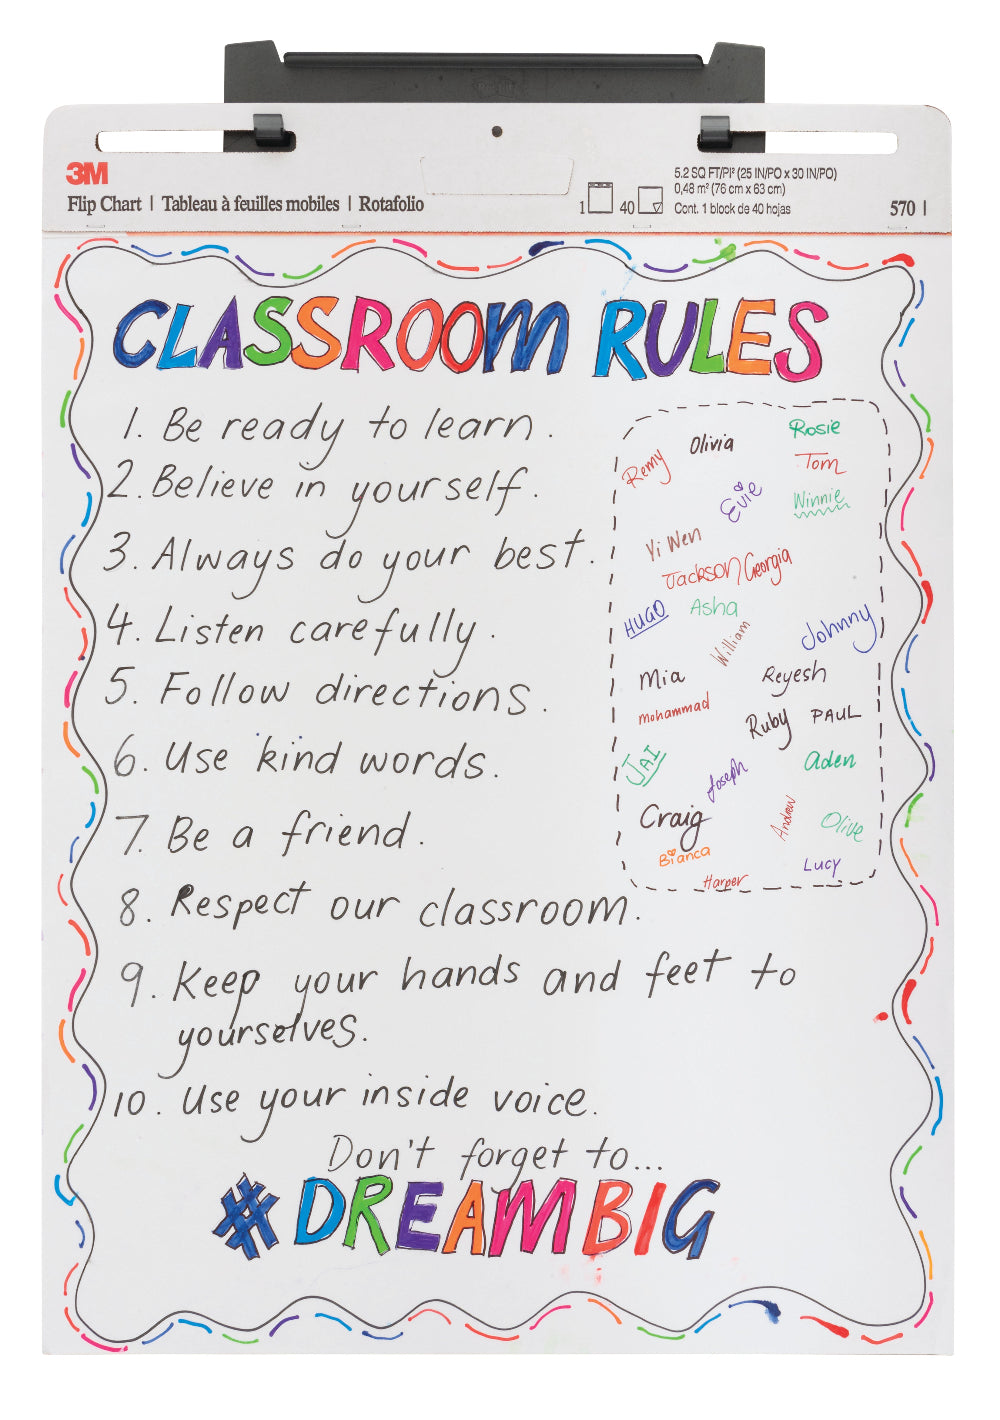 3M
Flip Chart | Tableau à feuilles mobiles | Rotafolio
1 40
5.2 SQ FT/PI² (25 IN/PO x 30 IN/PO)
0,48 m² (76 cm x 63 cm)
Cont. 1 block de 40 hojas
570 |
CLASSROOM RULES
1. Be ready to learn.
2. Believe in yourself.
3. Always do your best.
4. Listen carefully.
5. Follow directions.
6. Use kind words.
7. Be a friend.
8. Respect our classroom.
9. Keep your hands and feet to
yourselves.
10. Use your inside voice.
Don't forget to...
#DREAMBIG
Rosie
Olivia
Remy
Tom
Evie
Winnie
Yi Wen
Jackson Georgia
HUGO
Asha
William
Johnny
Mia
Reyesh
Mohammad
Ruby
PAUL
JAI
Joseph
Aden
Craig
Andrew
Olive
Bianca
Lucy
Harper